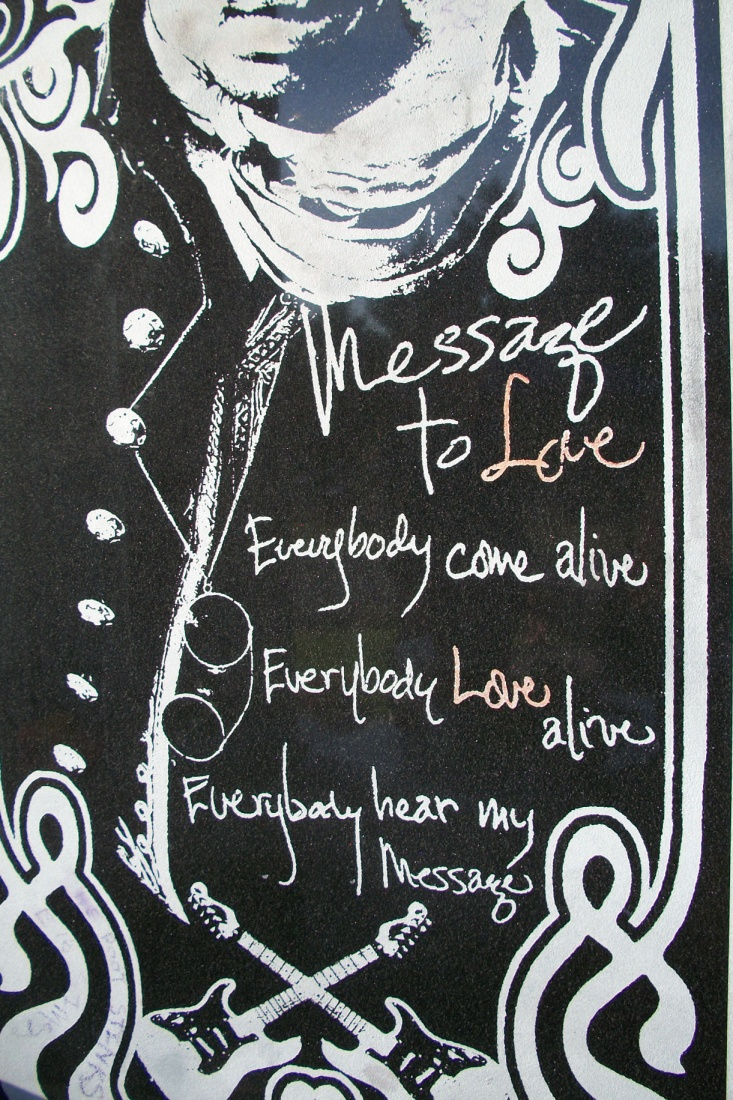 Message
to Love
Everybody come alive
Everybody Love
alive
Everybody hear my
Message